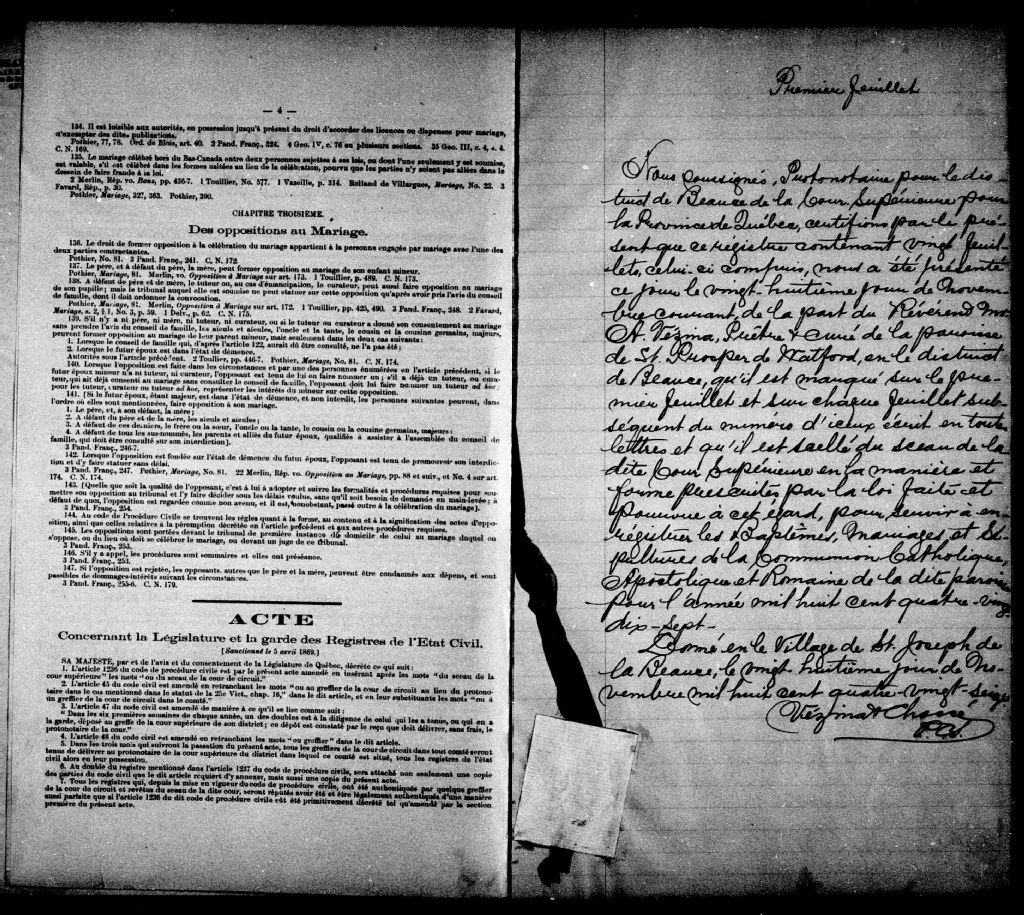 — 4 —
134. Il est loisible aux autorités, en possession jusqu'à présent du droit d'accorder des licences ou dispenses pour mariage,
d'exempter des dites publications.
Pothier, 77, 78. Ord. de Blois, art. 40. 2 Pand. Franç., 324. 4 Geo. IV, c. 76 en plusieurs sections. 35 Geo. III, c. 4, s. 4.
C. N. 169.
135. Le mariage célébré hors du Bas-Canada entre deux personnes sujettes à ses lois, ou dont l'une seulement y est soumise,
est valable, s'il est célébré dans les formes usitées au lieu de la célébration, pourvu que les parties n'y soient pas allées dans le
dessein de faire fraude à la loi.
2 Merlin, Rép. vo. Bans, pp. 436-7. 1 Touillier, No. 577. 1 Vazeille, p. 314. Rolland de Villargues, Mariage, No. 22. 3
Favard, Rép., p. 30.
Pothier, Mariage, 327, 363. Pothier, 390.
CHAPITRE TROISIEME.
Des oppositions au Mariage.
136. Le droit de former opposition à la célébration du mariage appartient à la personne engagée par mariage avec l'une des
deux parties contractantes.
Pothier, No. 81. 3 Pand. Franç., 241. C. N. 172.
137. Le père, et à défaut du père, la mère, peut former opposition au mariage de son enfant mineur.
Pothier, Mariage, 81. Merlin, vo. Opposition à Mariage sur art. 173. 1 Touillier, p. 489. C. N. 173.
138. A défaut de père et de mère, le tuteur, ou, au cas d'émancipation, le curateur, peut aussi faire opposition au mariage
de son pupille; mais le tribunal auquel elle est soumise ne peut statuer sur cette opposition qu'après avoir pris l'avis du conseil
de famille, dont il doit ordonner la convocation.
Pothier, Mariage, 81. Merlin, Opposition à Mariage sur art. 172. 1 Touillier, pp. 425, 490. 3 Pand. Franç., 248. 2 Favard,
Mariage, s. 2, § 1, No. 3, p. 59. 1 Delv., p. 62. C. N. 175.
139. S'il n'y a ni père, ni mère, ni tuteur, ni curateur, ou si le tuteur ou curateur a donné son consentement au mariage
sans prendre l'avis du conseil de famille, les aïeuls et aïeules, l'oncle et la tante, le cousin et la cousine germains, majeurs,
peuvent former opposition au mariage de leur parent mineur, mais seulement dans les deux cas suivants:
1. Lorsque le conseil de famille qui, d'après l'article 122, aurait dû être consulté, ne l'a pas été;
2. Lorsque le futur époux est dans l'état de démence.
Autorités sous l'article précédent. 2 Touillier, pp. 446-7. Pothier, Mariage, No. 81. C. N. 174.
140. Lorsque l'opposition est faite dans les circonstances et par une des personnes énumérées en l'article précédent, si le
futur époux mineur n'a ni tuteur, ni curateur, l'opposant est tenu de lui en faire nommer un; s'il a déjà un tuteur, ou cura-
teur, qui ait déjà consenti au mariage sans consulter le conseil de famille, l'opposant doit lui faire nommer un tuteur ad hoc;
pour les tuteur, curateur ou tuteur ad hoc, représenter les intérêts du mineur sur cette opposition.
141. [Si le futur époux, étant majeur, est dans l'état de démence, et non interdit, les personnes suivantes peuvent, dans
l'ordre où elles sont mentionnées, faire opposition à son mariage.
1. Le père, et, à son défaut, la mère;
2. A défaut du père et de la mère, les aïeuls et aïeules;
3. A défaut de ces derniers, le frère ou la sœur, l'oncle ou la tante, le cousin ou la cousine germains, majeurs;
4. A défaut de tous les sus-nommés, les parents et alliés du futur époux, qualifiés à assister à l'assemblée du conseil de
famille, qui doit être consulté sur son interdiction].
3 Pand. Franç., 246-7.
142. Lorsque l'opposition est fondée sur l'état de démence du futur époux, l'opposant est tenu de promouvoir son interdic-
tion et d'y faire statuer sans délai.
3 Pand. Franç., 247. Pothier, Mariage, No. 81. 22 Merlin, Rép. vo. Opposition au Mariage, pp. 88 et suiv., et No. 4 sur art.
174. C. N. 174.
143. [Quelle que soit la qualité de l'opposant, c'est à lui à adopter et suivre les formalités et procédures requises pour sou-
mettre son opposition au tribunal et l'y faire décider sous les délais voulus, sans qu'il soit besoin de demande en main-levée; à
défaut de quoi, l'opposition est regardée comme non avenue, et il est, nonobstant, passé outre à la célébration du mariage].
3 Pand. Franç., 254.
144. Au code de Procédure Civile se trouvent les règles quant à la forme, au contenu et à la signification des actes d'oppo-
sition, ainsi que celles relatives à la péremption décrétée en l'article précédent et aux autres procédures requises.
145. Les oppositions sont portées devant le tribunal de première instance du domicile de celui au mariage duquel on
s'oppose, ou du lieu où doit se célébrer le mariage, ou devant un juge de ce tribunal.
3 Pand. Franç., 253.
146. S'il y a appel, les procédures sont sommaires et elles ont préséance.
3 Pand. Franç., 253.
147. Si l'opposition est rejetée, les opposants, autres que le père et la mère, peuvent être condamnés aux dépens, et sont
passibles de dommages-intérêts suivant les circonstances.
3 Pand. Franç., 255-6. C. N. 179.
ACTE
Concernant la Législature et la garde des Registres de l'Etat Civil.
[Sanctionné le 5 avril 1869.]
SA MAJESTÉ, par et de l'avis et du consentement de la Législature de Québec, décrète ce qui suit:
1. L'article 1236 du code de procédure civile est par le présent acte amendé en insérant après les mots "du sceau de la
cour supérieure" les mots "ou du sceau de la cour de circuit."
2. L'article 45 du code civil est amendé en retranchant les mots "ou au greffier de la cour de circuit au lieu du protono-
taire dans le cas mentionné dans le statut de la 25e Vict., chap. 16," dans le dit article, et en leur substituant les mots "ou à
un greffier de la cour de circuit dans le comté."
3. L'article 47 du code civil est amendé de manière à ce qu'il se lise comme suit:
"Dans les six premières semaines de chaque année, un des doubles est à la diligence de celui qui les a tenus, ou qui en a
la garde, déposé au greffe de la cour supérieure de son district; ce dépôt est constaté par le reçu que doit délivrer, sans frais, le
protonotaire de la cour."
4. L'article 48 du code civil est amendé en retranchant les mots "ou greffier" dans le dit article.
5. Dans les trois mois qui suivront la passation du présent acte, tous les greffiers de la cour de circuit dans tout comté seront
tenus de délivrer au protonotaire de la cour supérieure du district dans lequel ce comté est situé, tous les registres de l'état
civil alors en leur possession.
6. Au double du registre mentionné dans l'article 1237 du code de procédure civile, sera attaché non seulement une copie
des parties du code civil que le dit article requiert d'y annexer, mais aussi une copie du présent acte.
7. Tous les registres qui, depuis la mise en vigueur du code de procédure civile, ont été authentiqués par quelque greffier
de la cour de circuit et revêtus du sceau de la dite cour, seront réputés avoir été et être légalement authentiqués d'une manière
aussi parfaite que si l'article 1236 du dit code de procédure civile eût été primitivement décrété tel qu'amendé par la section
première du présent acte.
Premier feuillet
Nous soussignés, Protonotaire pour le dis-
trict de Beauce de la Cour Supérieure pour
la Province de Québec, certifions par le pré-
sent que ce régistre contenant vingt feuil-
lets, celui-ci compris, nous a été présenté
ce jour le vingt-huitième jour de Novem-
bre courant, de la part du Révérend Mr
A. Vézina, Prêtre & curé de la paroisse
de St. Prosper de Watford, en le district
de Beauce, qu'il est marqué sur le pre-
mier feuillet et sur chaque feuillet sub-
séquent du numéro d'iceux écrit en toutes
lettres et qu'il est scellé du sceau de la
dite Cour Supérieure en la manière et
forme prescrites par la loi faite et
pourvue à cet égard, pour servir à en-
régistrer les Baptêmes, Mariages et Sé-
pultures de la Communion Catholique,
Apostolique et Romaine de la dite paroisse
pour l'année mil huit cent quatre-vingt-
dix-sept-
Donné en le Village de St. Joseph de
la Beauce, le vingt huitième jour de No-
vembre mil huit cent quatre-vingt-seize
Vézina &
P.C.S.